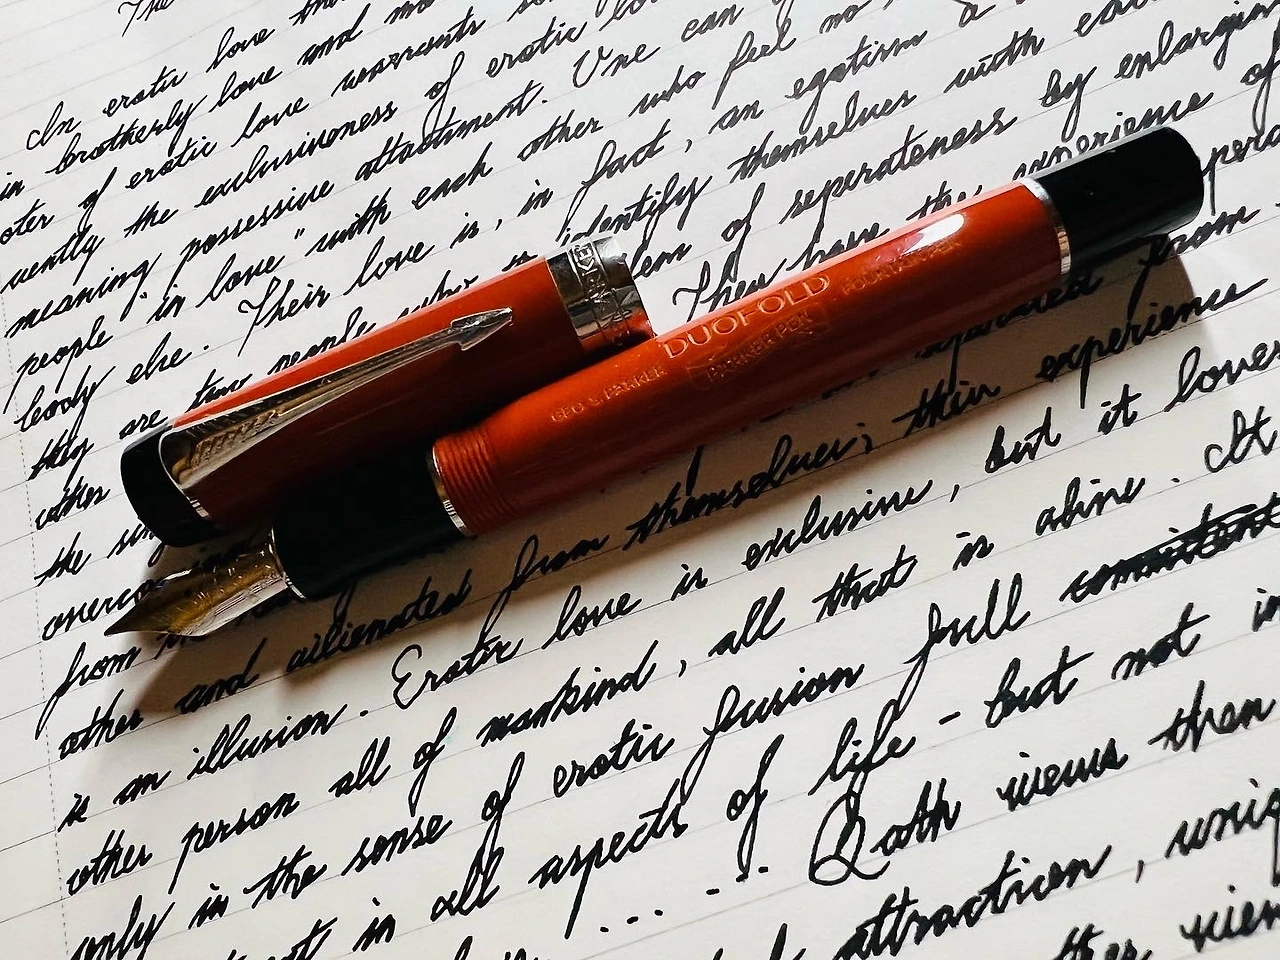 The
In erotic love the
in brotherly love and mo
oter of erotic love warrants so
uently the exclusiveness of erotic lo
meaning possessive attactment. One can
people "in love" with each other who feel no
body else. Their love is, in fact, an egotism a
they are two people who identify themselves with eac
other lem of seperateness by enlargin
the sing They have the experience of
overco
from the separated from
other and ailienated from themselves; their experience
is an illusion. Erotic love is exclusive, but it loves
other person all of mankind, all that is alive. It
only in the sense of erotic fusion full
not in all aspects of life - but not in
.... Both views then
attraction, uniq
other view
PARKER
GEO S. PARKER
DUOFOLD
PARKER PEN
FOUNTAIN PEN